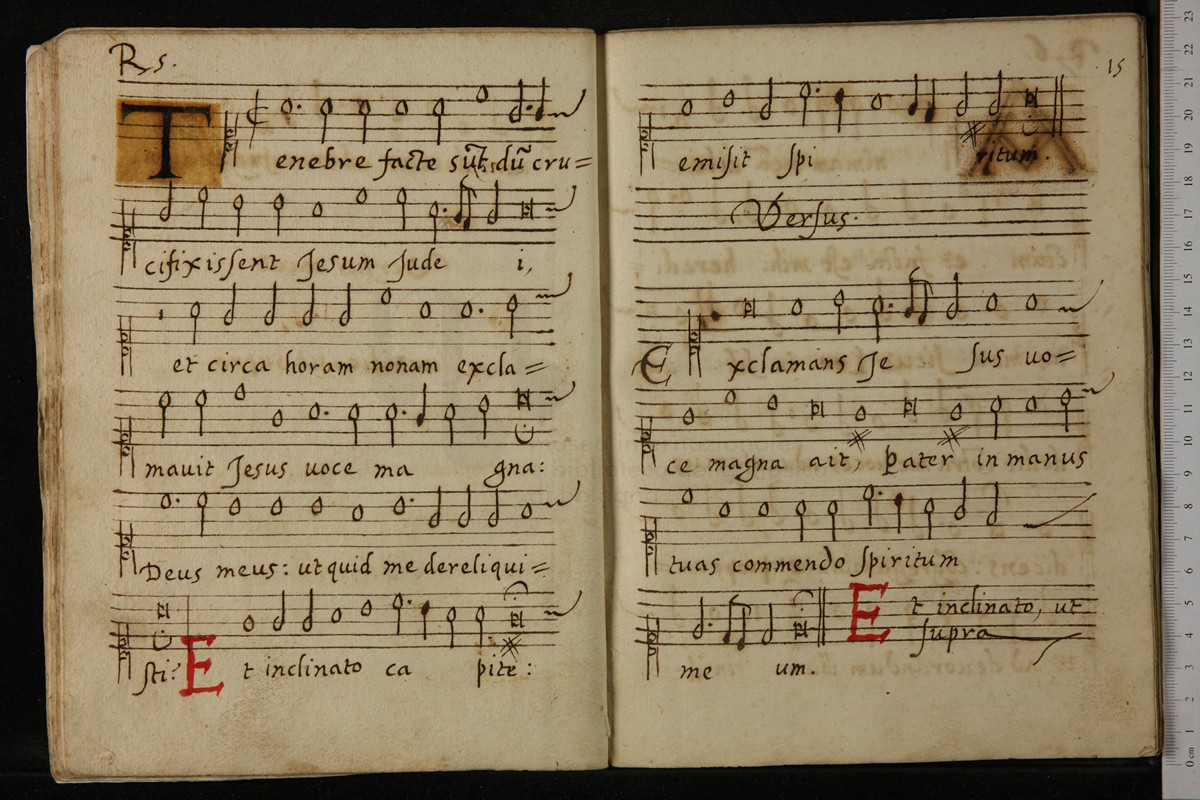 R. 5.
Tenebre facte sūt, dū cru=
cifixissent Jesum Jude i,
et circa horam nonam excla=
mavit Jesus voce ma gna:
Deus meus: ut quid me dereliqui=
sti? Et inclinato ca pite:
15
emisit spi ritum.
Versus.
Exclamans Je sus vo=
ce magna ait, Pater in manus
tuas commendo spiritum
me um. Et inclinato, ut
supra